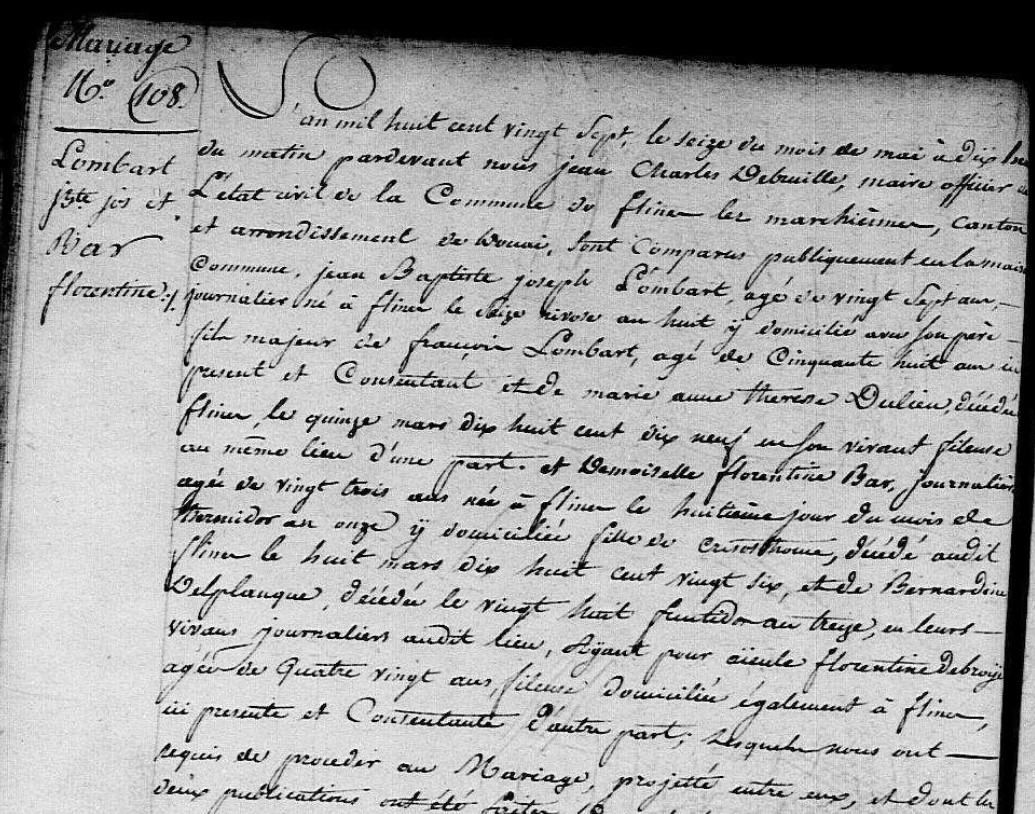 Mariage
N.º 108.
Lombart
jbte jos et
Bar
florentine ./.
L'an mil huit cent vingt Sept, le seize du mois de mai à dix
du matin pardevant nous jean Charles Debuille, maire officier
L'état civil de la Commune de flines lez marchiennes, canton
et arrondissement de Douai, sont Comparus publiquement en la maison
Commune, jean Baptiste joseph Lombart, agé de vingt Sept ans,
journalier né à flines le Seize nivose an huit y domicilié avec son père
fils majeur de françois Lombart, agé de Cinquante huit ans ici
présent et Consentant et de marie anne therese Dulieu, décédée
flines, le quinze mars dix huit cent dix neuf en son vivant fileuse
au même lieu d'une part. et Demoiselle florentine Bar, journalière
agée de vingt trois ans née à flines le huitième jour du mois de
thermidor an onze y domiciliée fille de Crisosthome, décédé audit
flines le huit mars dix huit cent vingt six, et de Bernardine
Delplanque, décédée le vingt huit fructidor an treize, en leurs
vivans journaliers audit lieu, Ayant pour aïeule florentine Debroye
agée de Quatre vingt ans, fileuse domiciliée également à flines,
ici presente et Consentante d'autre part; Lesquels nous ont
requis de proceder au Mariage, projetté entre eux, et dont les
deux publications ont été faites